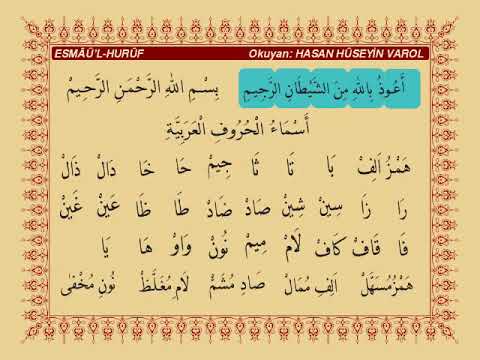 ESMÂÜ’L-HURÛF Okuyan: HASAN HÜSEYİN VAROL
أَعُوذُ بِاللّٰهِ مِنَ الشَّيْطَانِ الرَّجِيمِ بِسْمِ اللّٰهِ الرَّحْمٰنِ الرَّحِيمِ
أَسْمَاءُ الْحُرُوفِ الْعَرَبِيَّةِ
هَمْزُ اَلِفْ بَا تَا ثَا جِيمْ حَا خَا دَالْ ذَالْ
رَا زَا سِينْ شِينْ صَادْ ضَادْ طَا ظَا عَيْنْ غَيْنْ
فَا قَافْ كَافْ لَامْ مِيمْ نُونْ وَاوْ هَا يَا
هَمْزِ مُسَهَّلْ اَلِفِ مُمَالْ صَادِ مُشَمْ لَامِ مُغَلَّظْ نُونِ مُخْفٰى